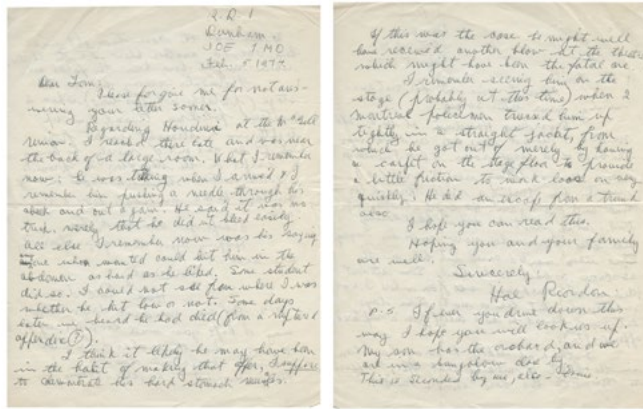 R.R.1
Dunham.
JOE 1MO
Feb. 5 1977
Dear Tom:
Please forgive me for not ans-
wering your letter sooner.
Regarding Houdini at the McGill
Union. I reached there late and was near
the back of a large room. What I remember
now: He was talking when I arrived & I
remember him pushing a needle through his
cheek and out again. He said it was no
trick, merely that he did it
All else I remember now was his saying
wanted could hit him in the
abdomen as hard as he liked. Some student
did so. I could not see from where I was
whether he hit low or not. Some days
later we heard he had died (from a ruptured
appendix (?).
I think it likely he may have been
in the habit of making that offer, I suppose
to demonstrate his hard stomach muscles.
If this was the case he might well
have received another blow at the theatre
which might have been the fatal one.
I remember seeing him on the
stage (probably at this time) when 2
montreal policemen trussed him up
tightly in a straight jacket, from
which he got out of merely by having
a carpet on the stage floor to provide
a little friction to work loose on very
quickly. He did an escape from a trunk
also.
I hope you can read this.
Hoping you and your family
are well.
Sincerely
Hal Riordon
P.S. If ever you drive down this
way I hope you will look us up.
My son has the orchard, and we
are in a bungalow close by
This is seconded by me, also.